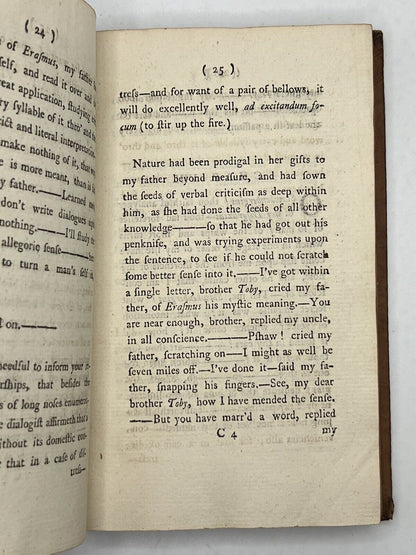 ( 24 )
of Eraſmus, my father
and read it over and
application, ſtudying
ſyllable of it thro' and
and literal interpretation
make nothing of it, that
is more meant, than
father.——Learned men
don't write dialogues upon
nothing.——I'll ſtudy the
allegoric ſenſe——
to turn a man's ſelf in,
on.———
needful to inform your
that beſides the
of long noſes
dialogiſt affirmeth that
its domeſtic con-
that in a caſe of diſ-
treſs—
( 25 )
treſs—and for want of a pair of bellows, it
will do excellently well, ad excitandum fo-
cum (to ſtir up the fire.)
Nature had been prodigal in her gifts to
my father beyond meaſure, and had ſown
the ſeeds of verbal criticiſm as deep within
him, as ſhe had done the ſeeds of all other
knowledge———ſo that he had got out his
penknife, and was trying experiments upon
the ſentence, to ſee if he could not ſcratch
ſome better ſenſe into it.——I've got within
a ſingle letter, brother Toby, cried my fa-
ther, of Eraſmus his myſtic meaning.—You
are near enough, brother, replied my uncle,
in all conſcience.————Pſhaw! cried my
father, ſcratching on——I might as well be
ſeven miles off.—I've done it—ſaid my fa-
ther, ſnapping his fingers.—See, my dear
brother Toby, how I have mended the ſenſe.
——But you have marr'd a word, replied
C 4
my